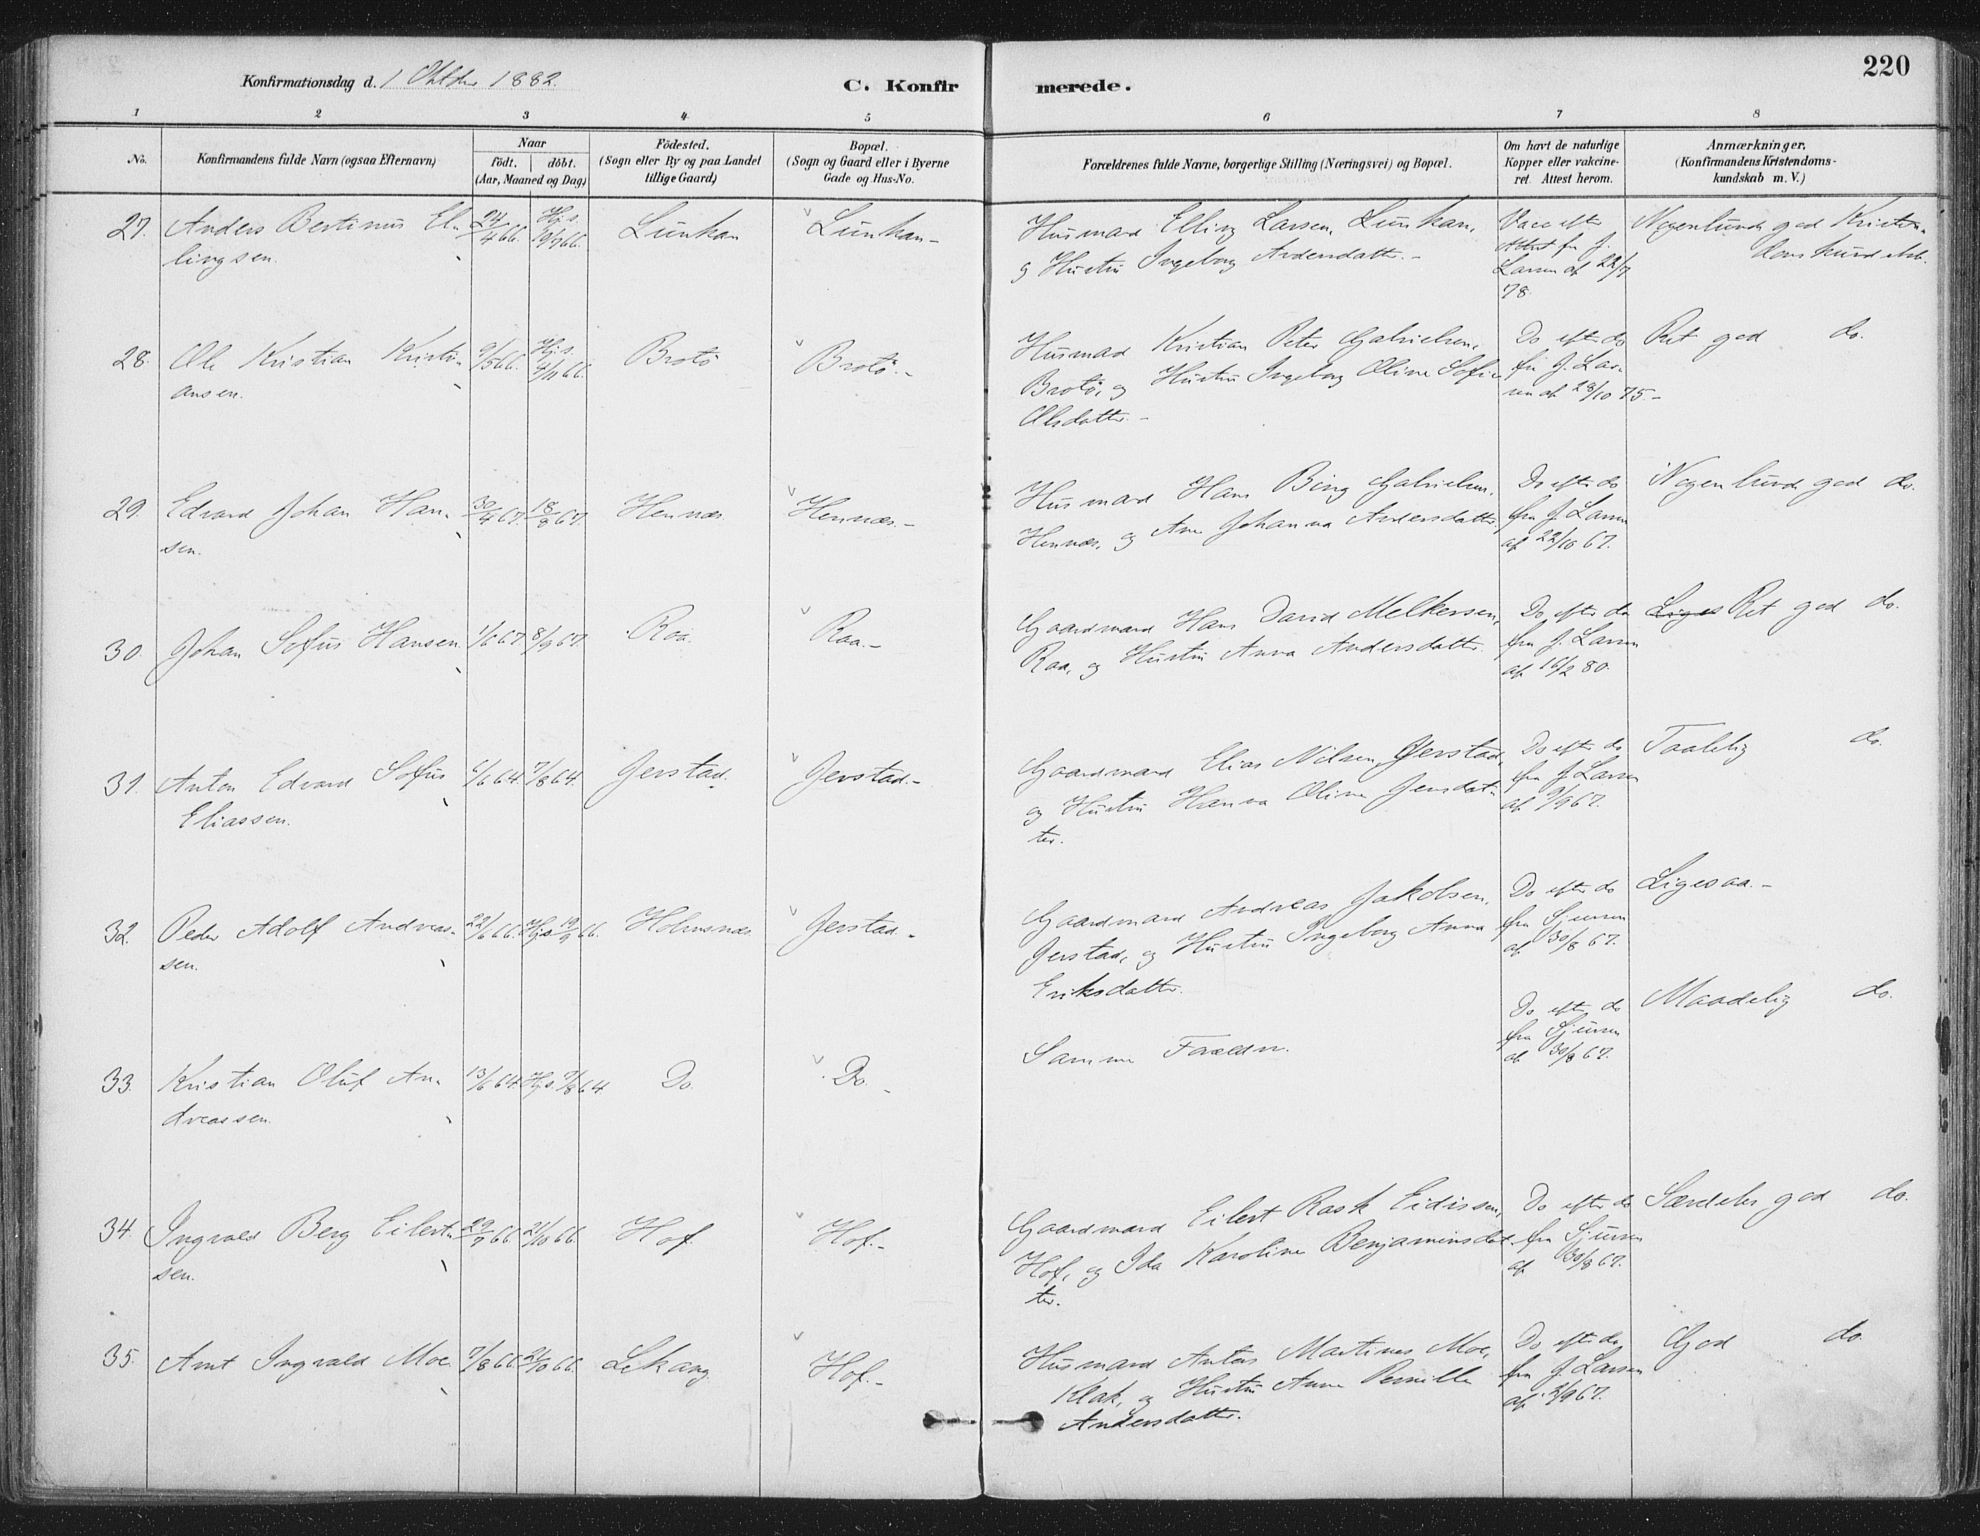 220
Konfirmationsdag d. 1 Oktober 1882.
C. Konfirmerede.
1 2 3 4 5 6 7 8
No.
Konfirmandens fulde Navn (ogsaa Efternavn)
Naar
födt. döbt.
(Aar, Maaned og Dag)
Födested.
(Sogn eller By og paa Landet
tillige Gaard)
Bopæl.
(Sogn og Gaard eller i Byerne
Gade og Hus-No.
Forældrenes fulde Navne, borgerlige Stilling (Næringsvei) og Bopæl.
Om havt de naturlige
Kopper eller vakcine-
ret. Attest herom.
Anmærkninger,
(Konfirmandens Kristendoms-
kundskab m. V.)
27. Anders Bertinus El- 24/4 66. Hjs. 19/9 66. Lunkan Lunkan-
lingsen.
Husmand Elling Larsen, Lunkan,
og Hustru Ingeborg Andersdatter.-
Vacc efter
Attest fra J.
Larsen af 22/7
78.
Nogenlunde god Kristen-
domskundskab.
28. Ole Kristian Kristi- 9/5 66. Hjs. 4/11 66. Brotö Brotö.-
ansen.
Husmand Kristian Peter Gabrielsen,
Brotö, og Hustru Ingeborg Oline Sofie
Olsdatter.-
Do efter do
fra J. Lar-
sen af 28/10 75.-
Ret god do.
29. Edvard Johan Han- 30/4 67. 18/8 67. Hennæs Hennæs.-
sen.
Husmand Hans Bing Gabrielsen,
Hennæs, og Ane Johanna Andersdatter.
Do efter do
fra J. Larsen
af 22/10 67.
Nogenlunde god do.
30. Johan Sofus Hansen 1/6 67. 8/9 67. Raa Raa.-
Gaardmand Hans David Melkersen,
Raa, og Hustru Anna Andersdatter.
Do efter do
fra J. Larsen
af 16/2 80.
Ret god do.
31. Anton Edvard Sofus 6/6 64. 7/8 64. Gerstad. Gerstad.-
Eliassen.
Gaardmand Elias Nilsen, Gerstad,
og Hustru Hanna Oline Jensdat-
ter.
Do efter do
fra J Larsen
af 9/9 67.
Taalelig do.
32. Peder Adolf Andreas- 22/6 66. Hjs 19/9 66. Holmsnæs Gerstad.-
sen.
Gaardmand Andreas Jakobsen,
Gerstad, og Hustru Ingeborg Anna
Eriksdatter.
Do efter do
fra Sjursen
af 30/8 67.
Ligesaa.-
33. Kristian Oluf An- 13/6 64. Hjs. 7/8 64 Do. Do.-
dreassen.
Samme Forældre.
Do efter do
fra Sjursen
af 30/8 67.
Maadelig do.
34. Ingvald Berg Eilert- 29/7 66. 21/10 66. Hof. Hof.-
sen.
Gaardmand Eilert Rask Eidissen,
Hof, og Ida Karoline Benjaminsdat-
ter.
Do efter do
fra Sjursen
af 30/8 67.
Særdeles god do.
35. Arnt Ingvald Moe. 7/8 66. 21/10 66. Lekang Hof.-
Husmand Antons Martinus Moe,
Klak, og Hustru Anne Pernille
Andersdatter.
Do. efter do.
fra J. Larsen
af 2/9 67.
God do.